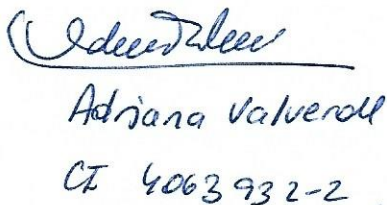 Adriana Valverde
CI 4063932-2